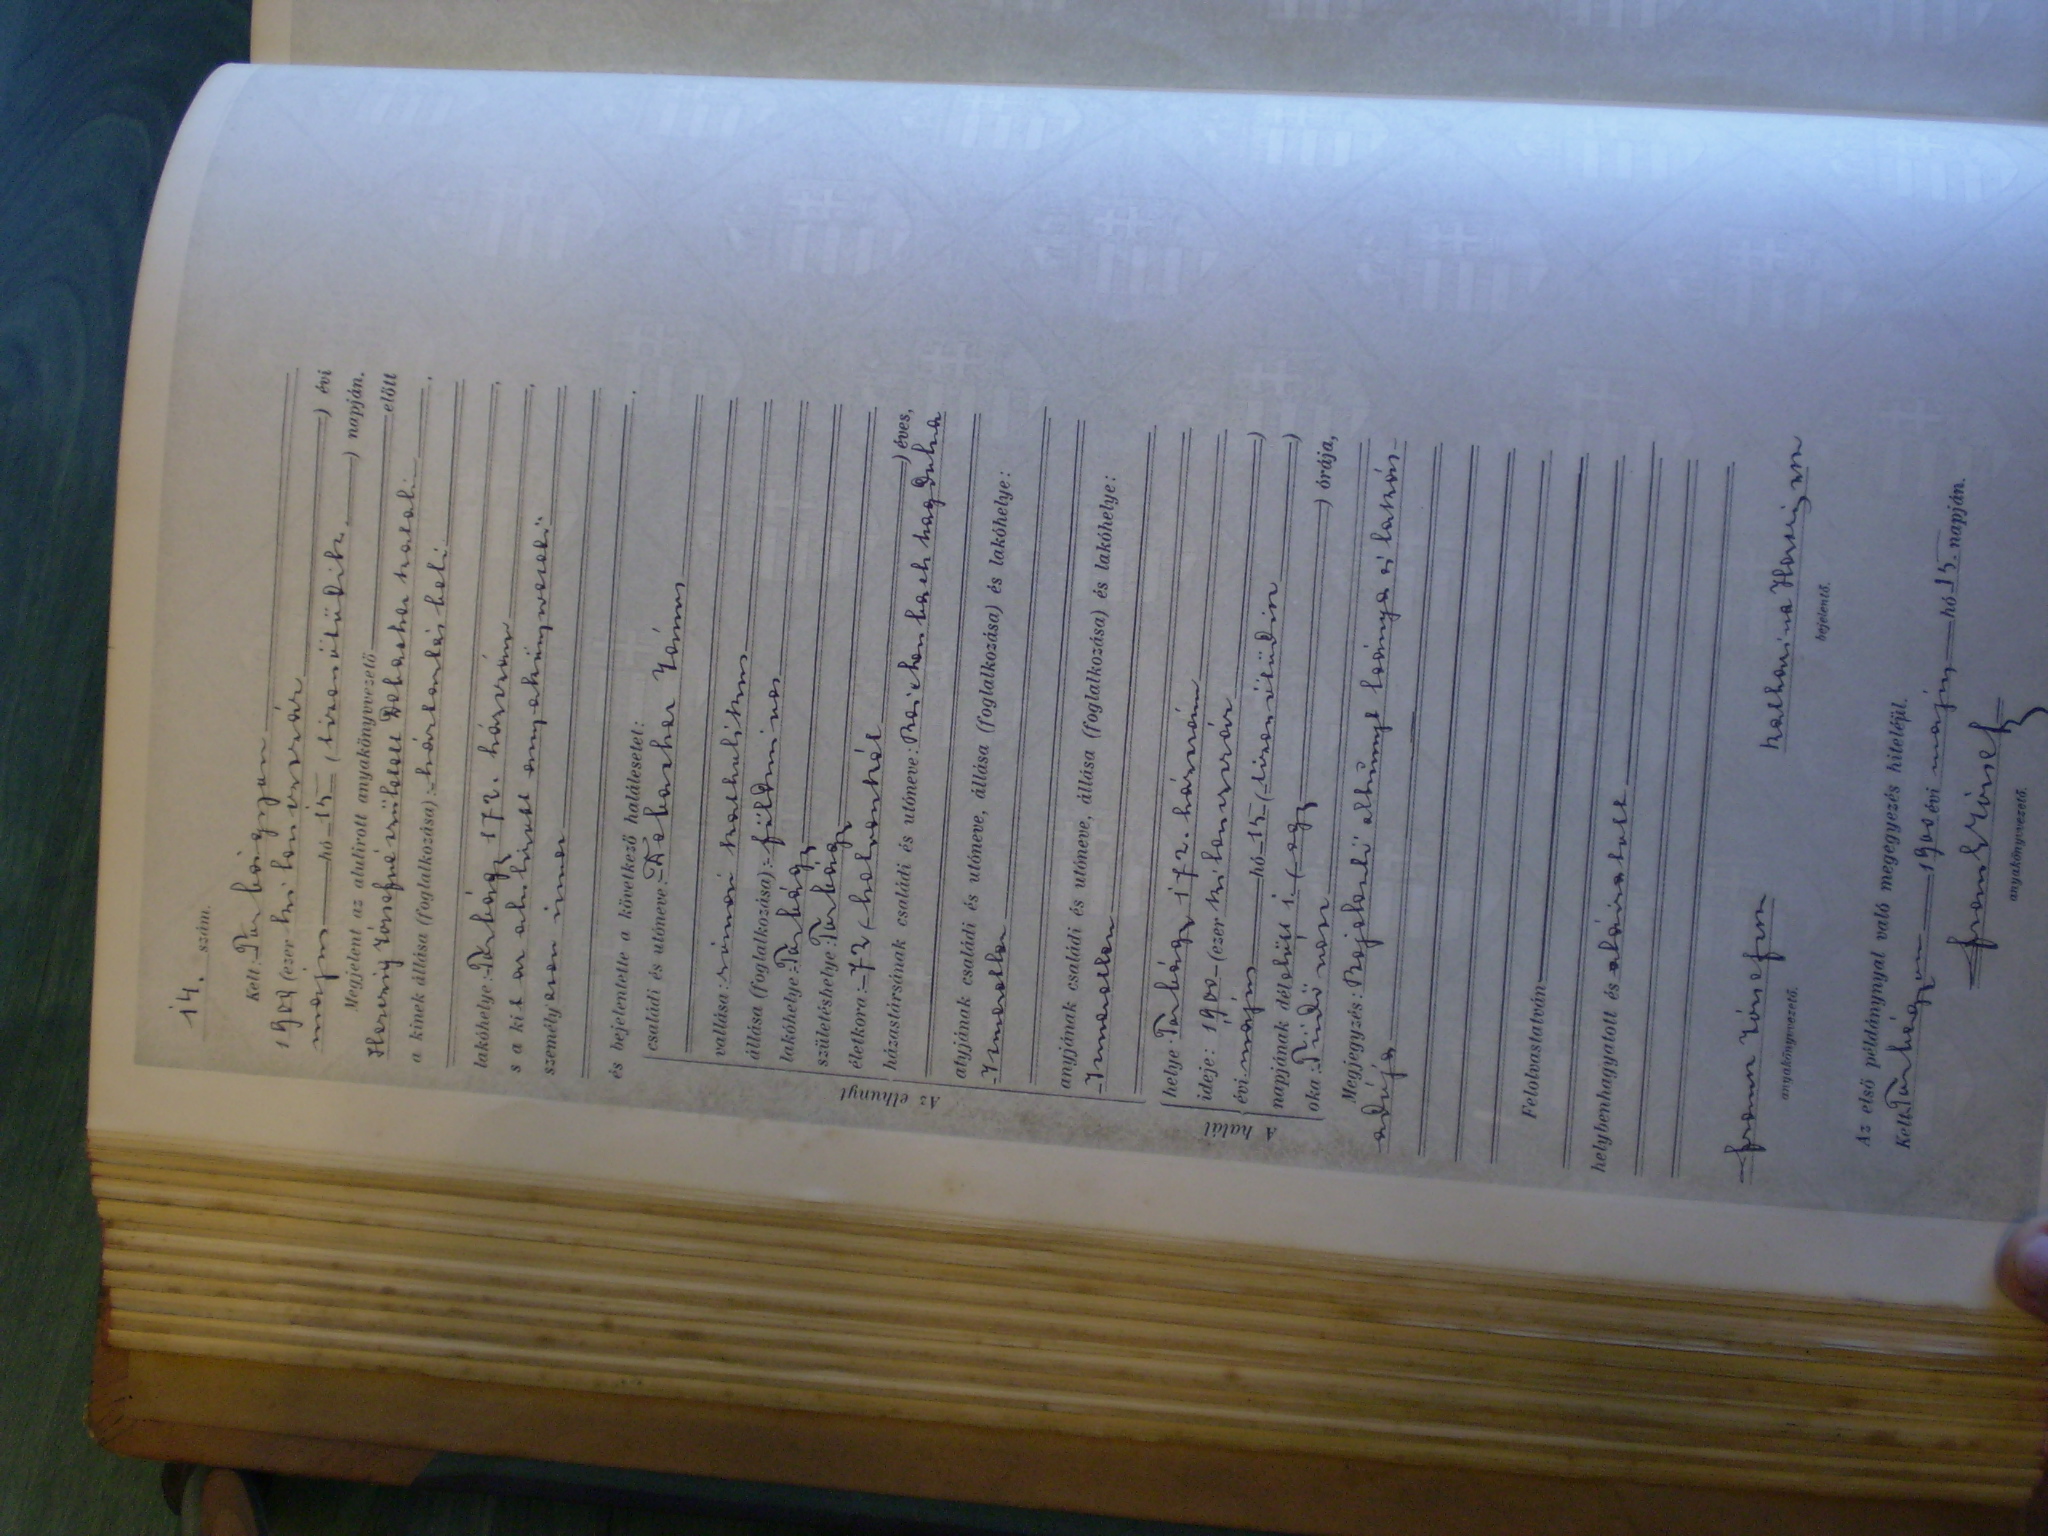 14. szám.
Kelt: Torbágyon
1900 (ezer kilenczszáz) évi
május hó 15 (tizenötödik) napján.
Megjelent az alulirott anyakönyvvezető előtt
Józsefné született
a kinek állása (foglalkozása):
lakóhelye: Torbágy 172. házszám,
s a kit az alulirott anyakönyvvezető
személyesen ismer
és bejelentette a következő halálesetet:
Az elhunyt
családi és utóneve: János
vallása: római katholikus
állása (foglalkozása): földmives
lakóhelye: Torbágy
születéshelye: Torbágy
életkora: 72 (hetvenkét) éves,
házastársának családi és utóneve:
atyjának családi és utóneve, állása (foglalkozása) és lakóhelye:
Ismeretlen
anyjának családi és utóneve, állása (foglalkozása) és lakóhelye:
Ismeretlen
A halál
helye: Torbágy 172. házszám
ideje: 1900 (ezer kilenczszáz)
évi május hó 15 (tizenötödik)
napjának délelőtt 1. (egy) órája,
oka: Tüdővész
Megjegyzés: Bejelentő elhunyt leánya és
Felolvastatván
helybenhagyatott és aláiratott
József Katharina
anyakönyvvezető. bejelentő.
Az első példánynyal való megegyezés hiteléül.
Kelt: Torbágyon 1900 évi május hó 15. napján.
József
anyakönyvvezető.